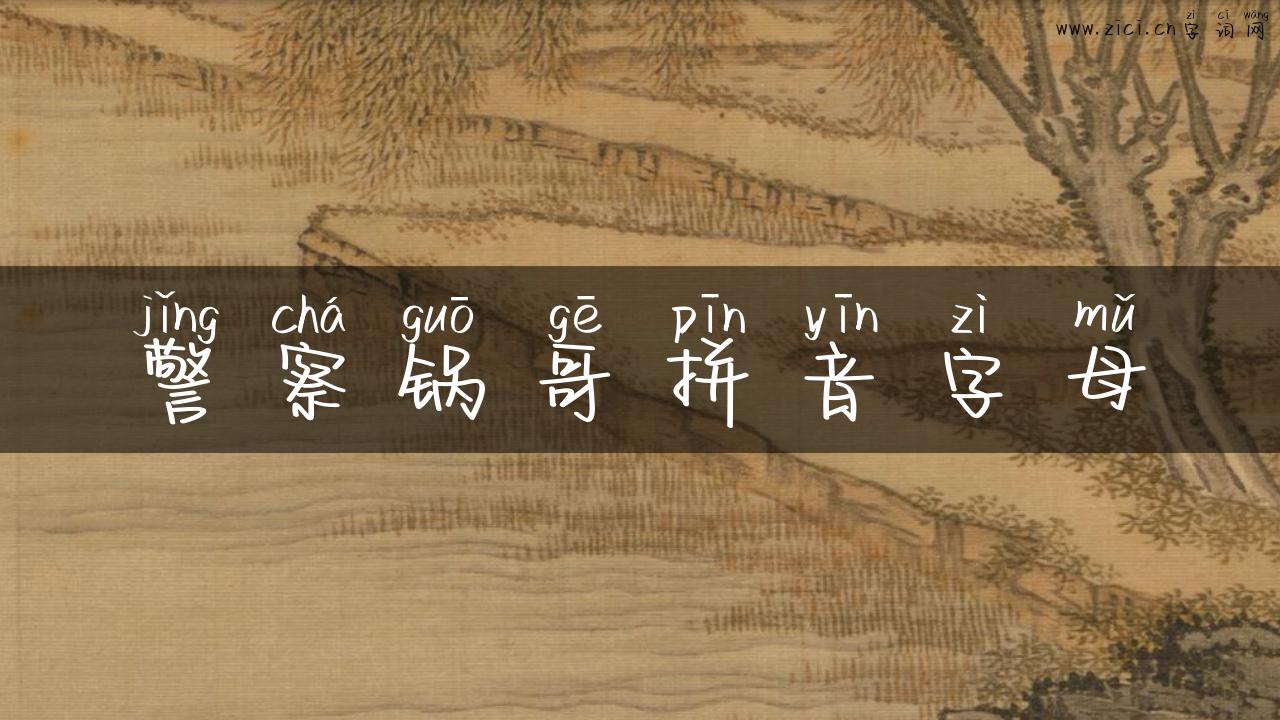 zì cí wǎng
www.zici.cn 字 词 网
jǐng chá guō gē pīn yīn zì mǔ
警 察 锅 哥 拼 音 字 母